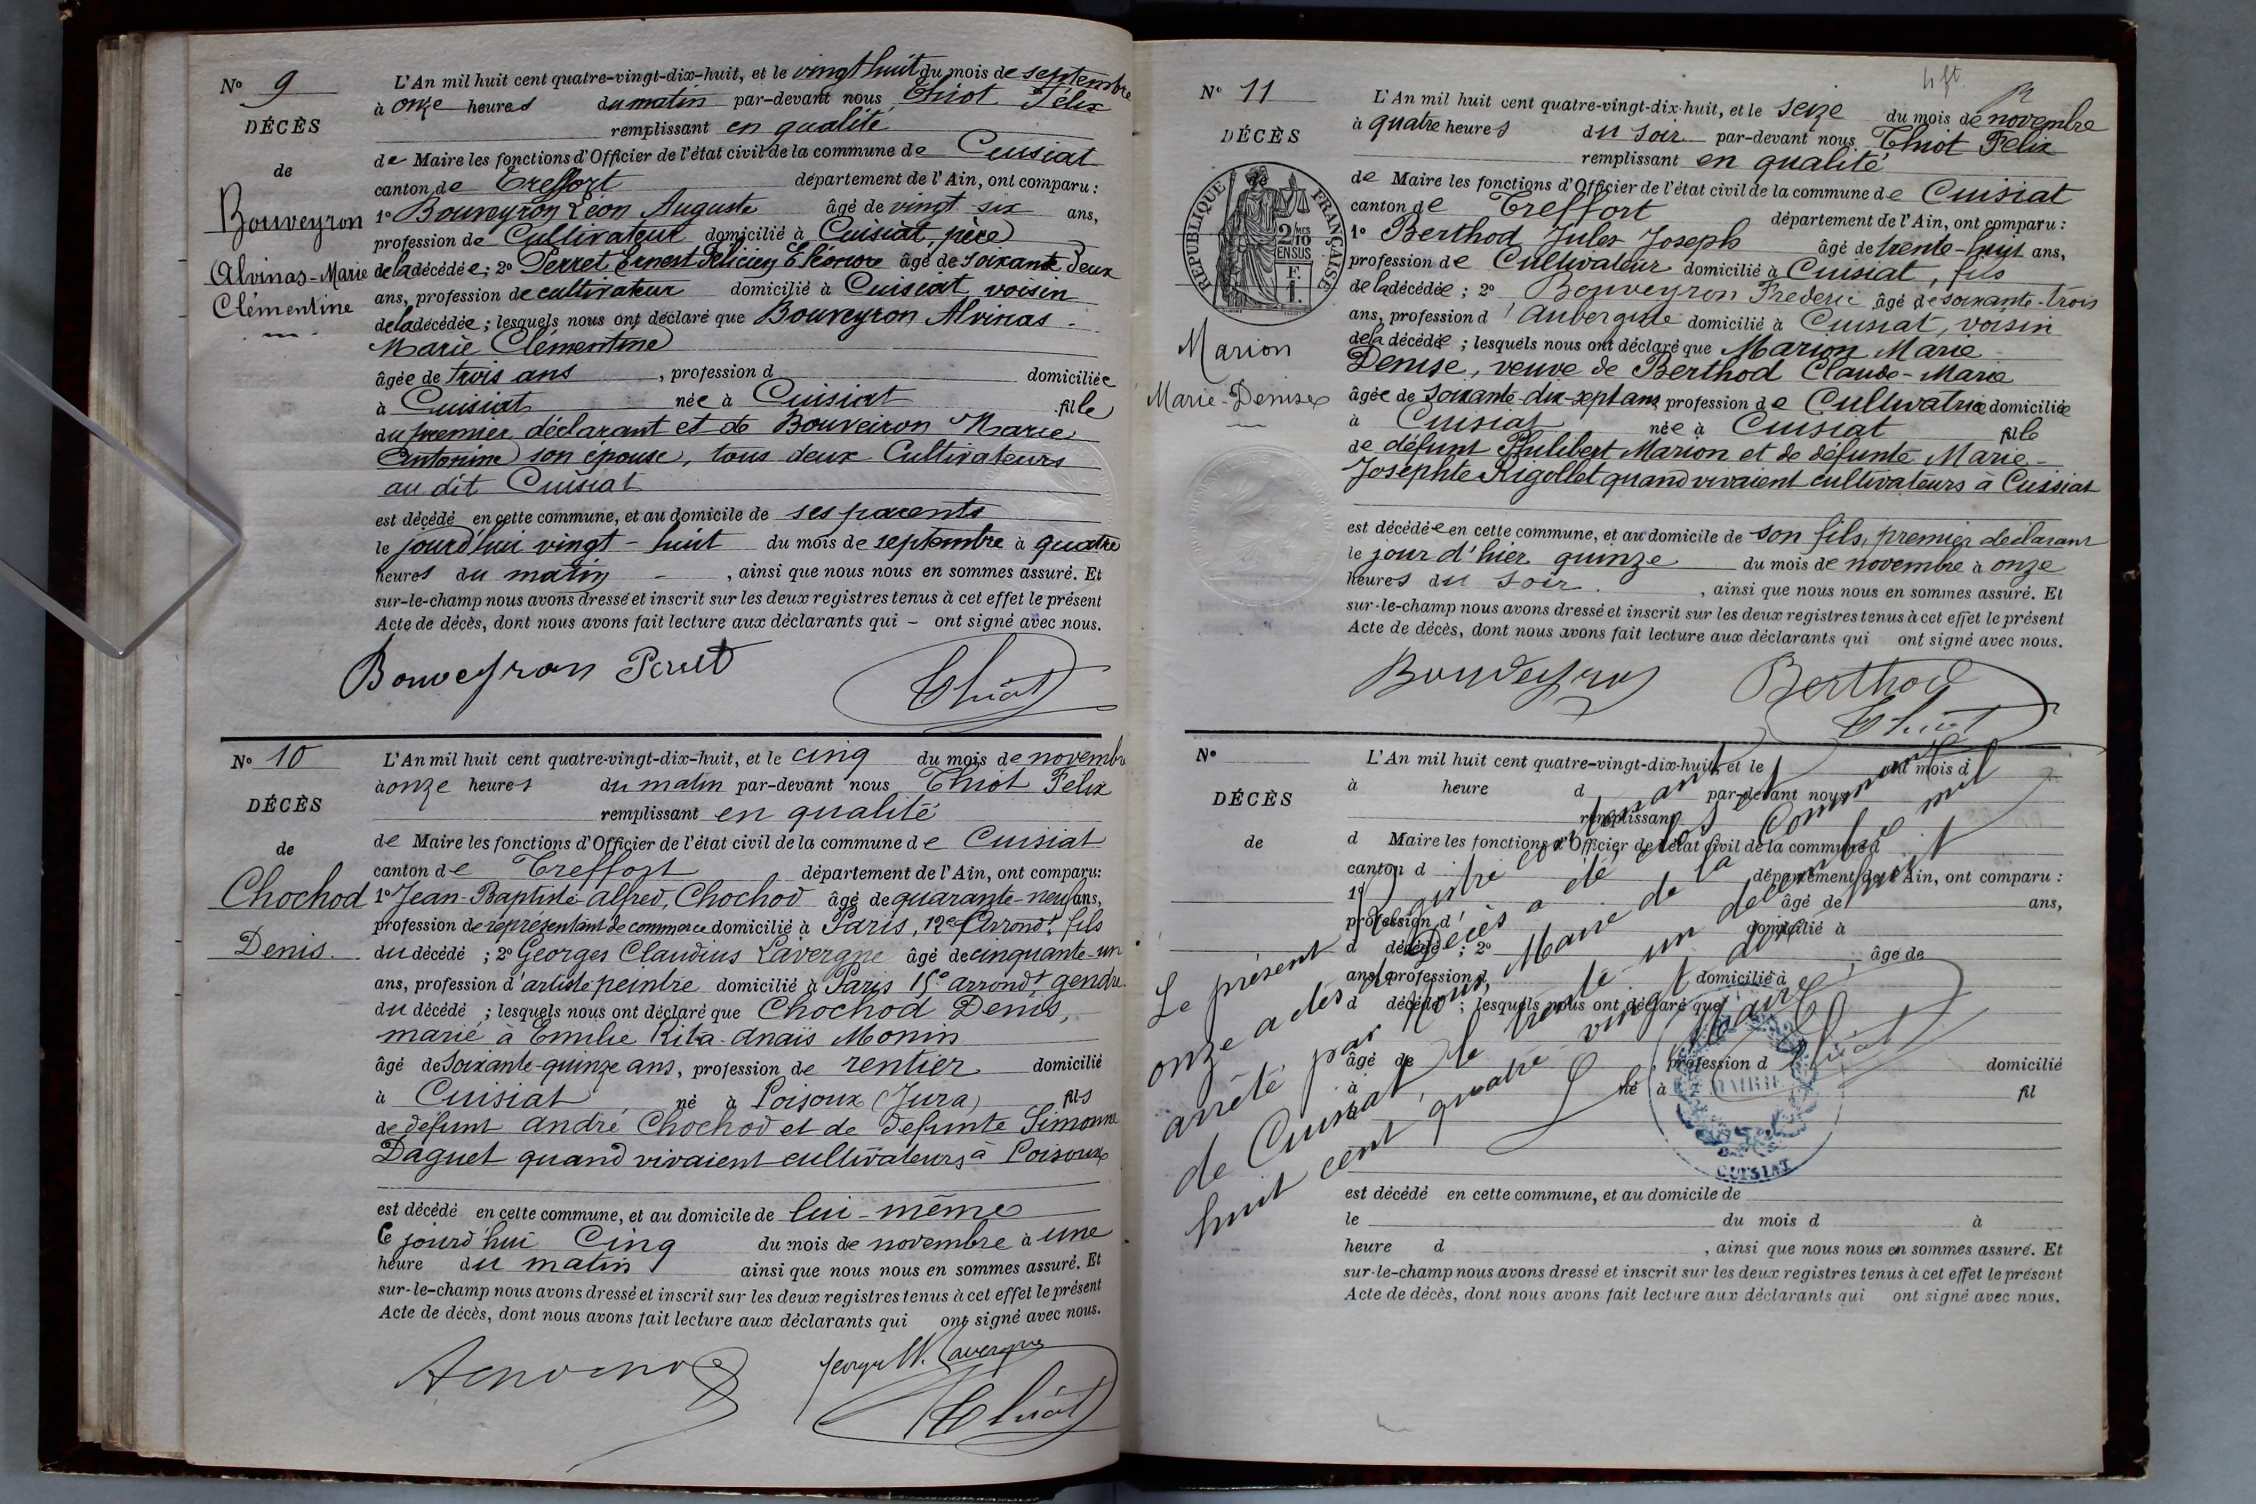 N° 9
DÉCÈS
de
Bouveyron
Alvinas-Marie
Clémentine
L'An mil huit cent quatre-vingt-dix-huit, et le vingt huit du mois de septembre
à onze heures du matin par-devant nous Thiot Félix
remplissant en qualité
de Maire les fonctions d'Officier de l'état civil de la commune de Cuisiat
canton de Treffort département de l'Ain, ont comparu :
1° Bouveyron Léon Auguste âgé de vingt six ans,
profession de Cultivateur domicilié à Cuisiat, père
de la décédée ; 2° Perret Ernest Félicien Eléonore âgé de soixante deux
ans, profession de cultivateur domicilié à Cuisiat voisin
de la décédée ; lesquels nous ont déclaré que Bouveyron Alvinas-
Marie Clémentine
âgée de trois ans , profession d domiciliée
à Cuisiat née à Cuisiat fille
du premier déclarant et de Bouveiron Marie
Antonine son épouse, tous deux Cultivateurs
au dit Cuisiat
est décédé en cette commune, et au domicile de ses parents
le jourd'hui vingt-huit du mois de septembre à quatre
heures du matin - , ainsi que nous nous en sommes assuré. Et
sur-le-champ nous avons dressé et inscrit sur les deux registres tenus à cet effet le présent
Acte de décès, dont nous avons fait lecture aux déclarants qui - ont signé avec nous.
Bouveyron Perret Thiot
N° 10
DÉCÈS
de
Chochod
Denis
L'An mil huit cent quatre-vingt-dix-huit, et le cinq du mois de novembre
à onze heures du matin par-devant nous Thiot Félix
remplissant en qualité
de Maire les fonctions d'Officier de l'état civil de la commune de Cuisiat
canton de Treffort département de l'Ain, ont comparu:
1° Jean-Baptiste alfred, Chochod âgé de quarante-neuf ans,
profession de représentant de commerce domicilié à Paris, 12e Arrondt. fils
du décédé ; 2° Georges Claudius Lavergne âgé de cinquante-un
ans, profession d'artiste peintre domicilié à Paris 15e arrondt gendre
du décédé ; lesquels nous ont déclaré que Chochod Denis,
marié à Emilie Rita-anaïs Monin
âgé de soixante-quinze ans, profession de rentier domicilié
à Cuisiat né à Loisoux (Jura) fils
de défunt andré Chochod et de défunte Simonne
Daguet quand vivaient cultivateurs à Loisoux
est décédé en cette commune, et au domicile de lui-même
le jourd'hui Cinq du mois de novembre à une
heure du matin ainsi que nous nous en sommes assuré. Et
sur-le-champ nous avons dressé et inscrit sur les deux registres tenus à cet effet le présent
Acte de décès, dont nous avons fait lecture aux déclarants qui ont signé avec nous.
Lavergne
Thiot
N° 11
DÉCÈS
RÉPUBLIQUE FRANÇAISE
2/10
EN SUS
Marion
Marie-Denise
L'An mil huit cent quatre-vingt-dix-huit, et le seize du mois de novembre
à quatre heures du soir par-devant nous Thiot Félix
remplissant en qualité
de Maire les fonctions d'Officier de l'état civil de la commune de Cuisiat
canton de Treffort département de l'Ain, ont comparu :
1° Berthod Jules Joseph âgé de trente-huit ans,
profession de Cultivateur domicilié à Cuisiat, fils
de la décédée ; 2° Bouveyron Frederic âgé de soixante-trois
ans, profession d'aubergiste domicilié à Cuisiat, voisin
de la décédée ; lesquels nous ont déclaré que Marion Marie
Denise, veuve de Berthod Claude-Marie
âgée de soixante-dix-sept ans profession de Cultivatrice domiciliée
à Cuisiat née à Cuisiat fille
de défunt Philibert Marion et de défunte Marie-
Josephte Rigollet quand vivaient cultivateurs à Cuisiat
est décédée en cette commune, et au domicile de son fils, premier déclarant
le jour d'hier quinze du mois de novembre à onze
heures du soir , ainsi que nous nous en sommes assuré. Et
sur-le-champ nous avons dressé et inscrit sur les deux registres tenus à cet effet le présent
Acte de décès, dont nous avons fait lecture aux déclarants qui ont signé avec nous.
Bouveyron Berthod
Thiot
N°
DÉCÈS
de
L'An mil huit cent quatre-vingt-dix-huit, et le du mois d
à heure d par-devant nous
remplissant
d Maire les fonctions d'Officier de l'état civil de la commune d
canton d département de l'Ain, ont comparu :
1° âgé de ans,
profession d domicilié à
d décédé ; 2° âgé de
ans, profession d domicilié à
d décédé ; lesquels nous ont déclaré que
âgé de profession d domicilié
à né à fil
est décédé en cette commune, et au domicile de
le du mois d à
heure d , ainsi que nous nous en sommes assuré. Et
sur-le-champ nous avons dressé et inscrit sur les deux registres tenus à cet effet le présent
Acte de décès, dont nous avons fait lecture aux déclarants qui ont signé avec nous.
Le présent Registre contenant
onze actes de Décès a été clos et
arrêté par Nous, Maire de la Commune
de Cuisiat le trente un décembre mil
huit cent quatre vingt dix huit
Le Maire
Thiot
MAIRIE
CUISIAT